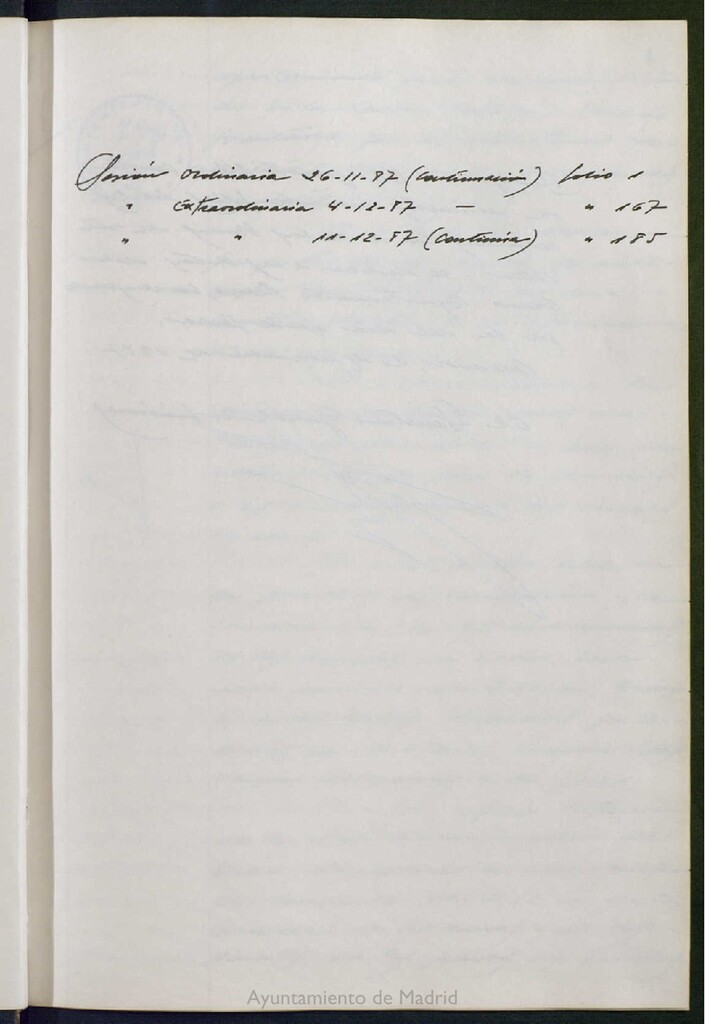 Sesión ordinaria 26-11-87 (continuación) folio 1
" extraordinaria 4-12-87 — " 167
" " 11-12-87 (continúa) " 185
Ayuntamiento de Madrid